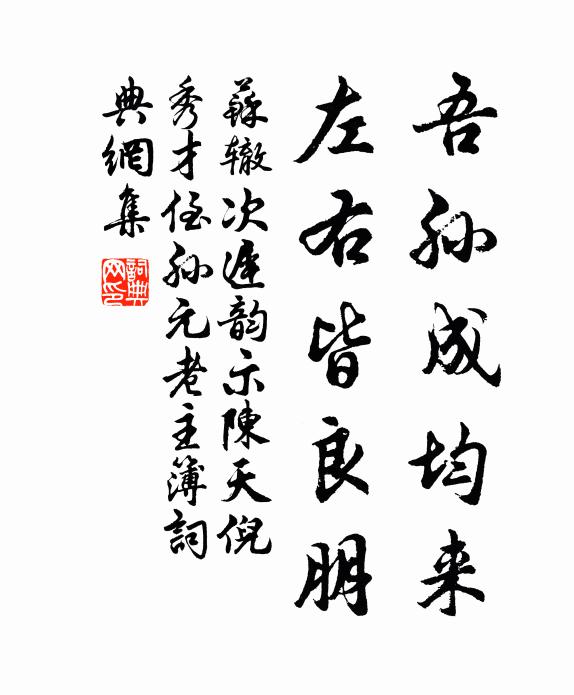 吾孙成均来
左右皆良朋
蘇辙次遲韵示陳天倪
秀才侄孙元老主簿詞
典網集
詞典
网印